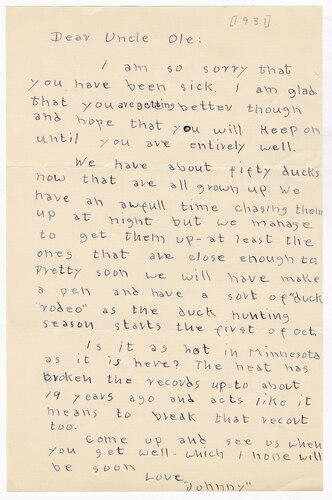 [1931]
Dear Uncle Ole:
I am so sorry that
you have been sick. I am glad
that you are getting better though
and hope that you will keep on
until you are entirely well.
We have about fifty ducks
now that are all grown up. We
have an awfull time chasing them
up at night but we manage
to get them up - at least the
ones that are close enough to.
Pretty soon we will have make
a pen and have a sort of "duck
rodeo" as the duck hunting
season starts the first of oct.
Is it as hot in Minnesota
as it is here? The heat has
broken the records up to about
19 years ago and acts like it
means to break that recort
too.
Come up and see us when
you get well - which I hope will
be soon
Love
"Johnny"